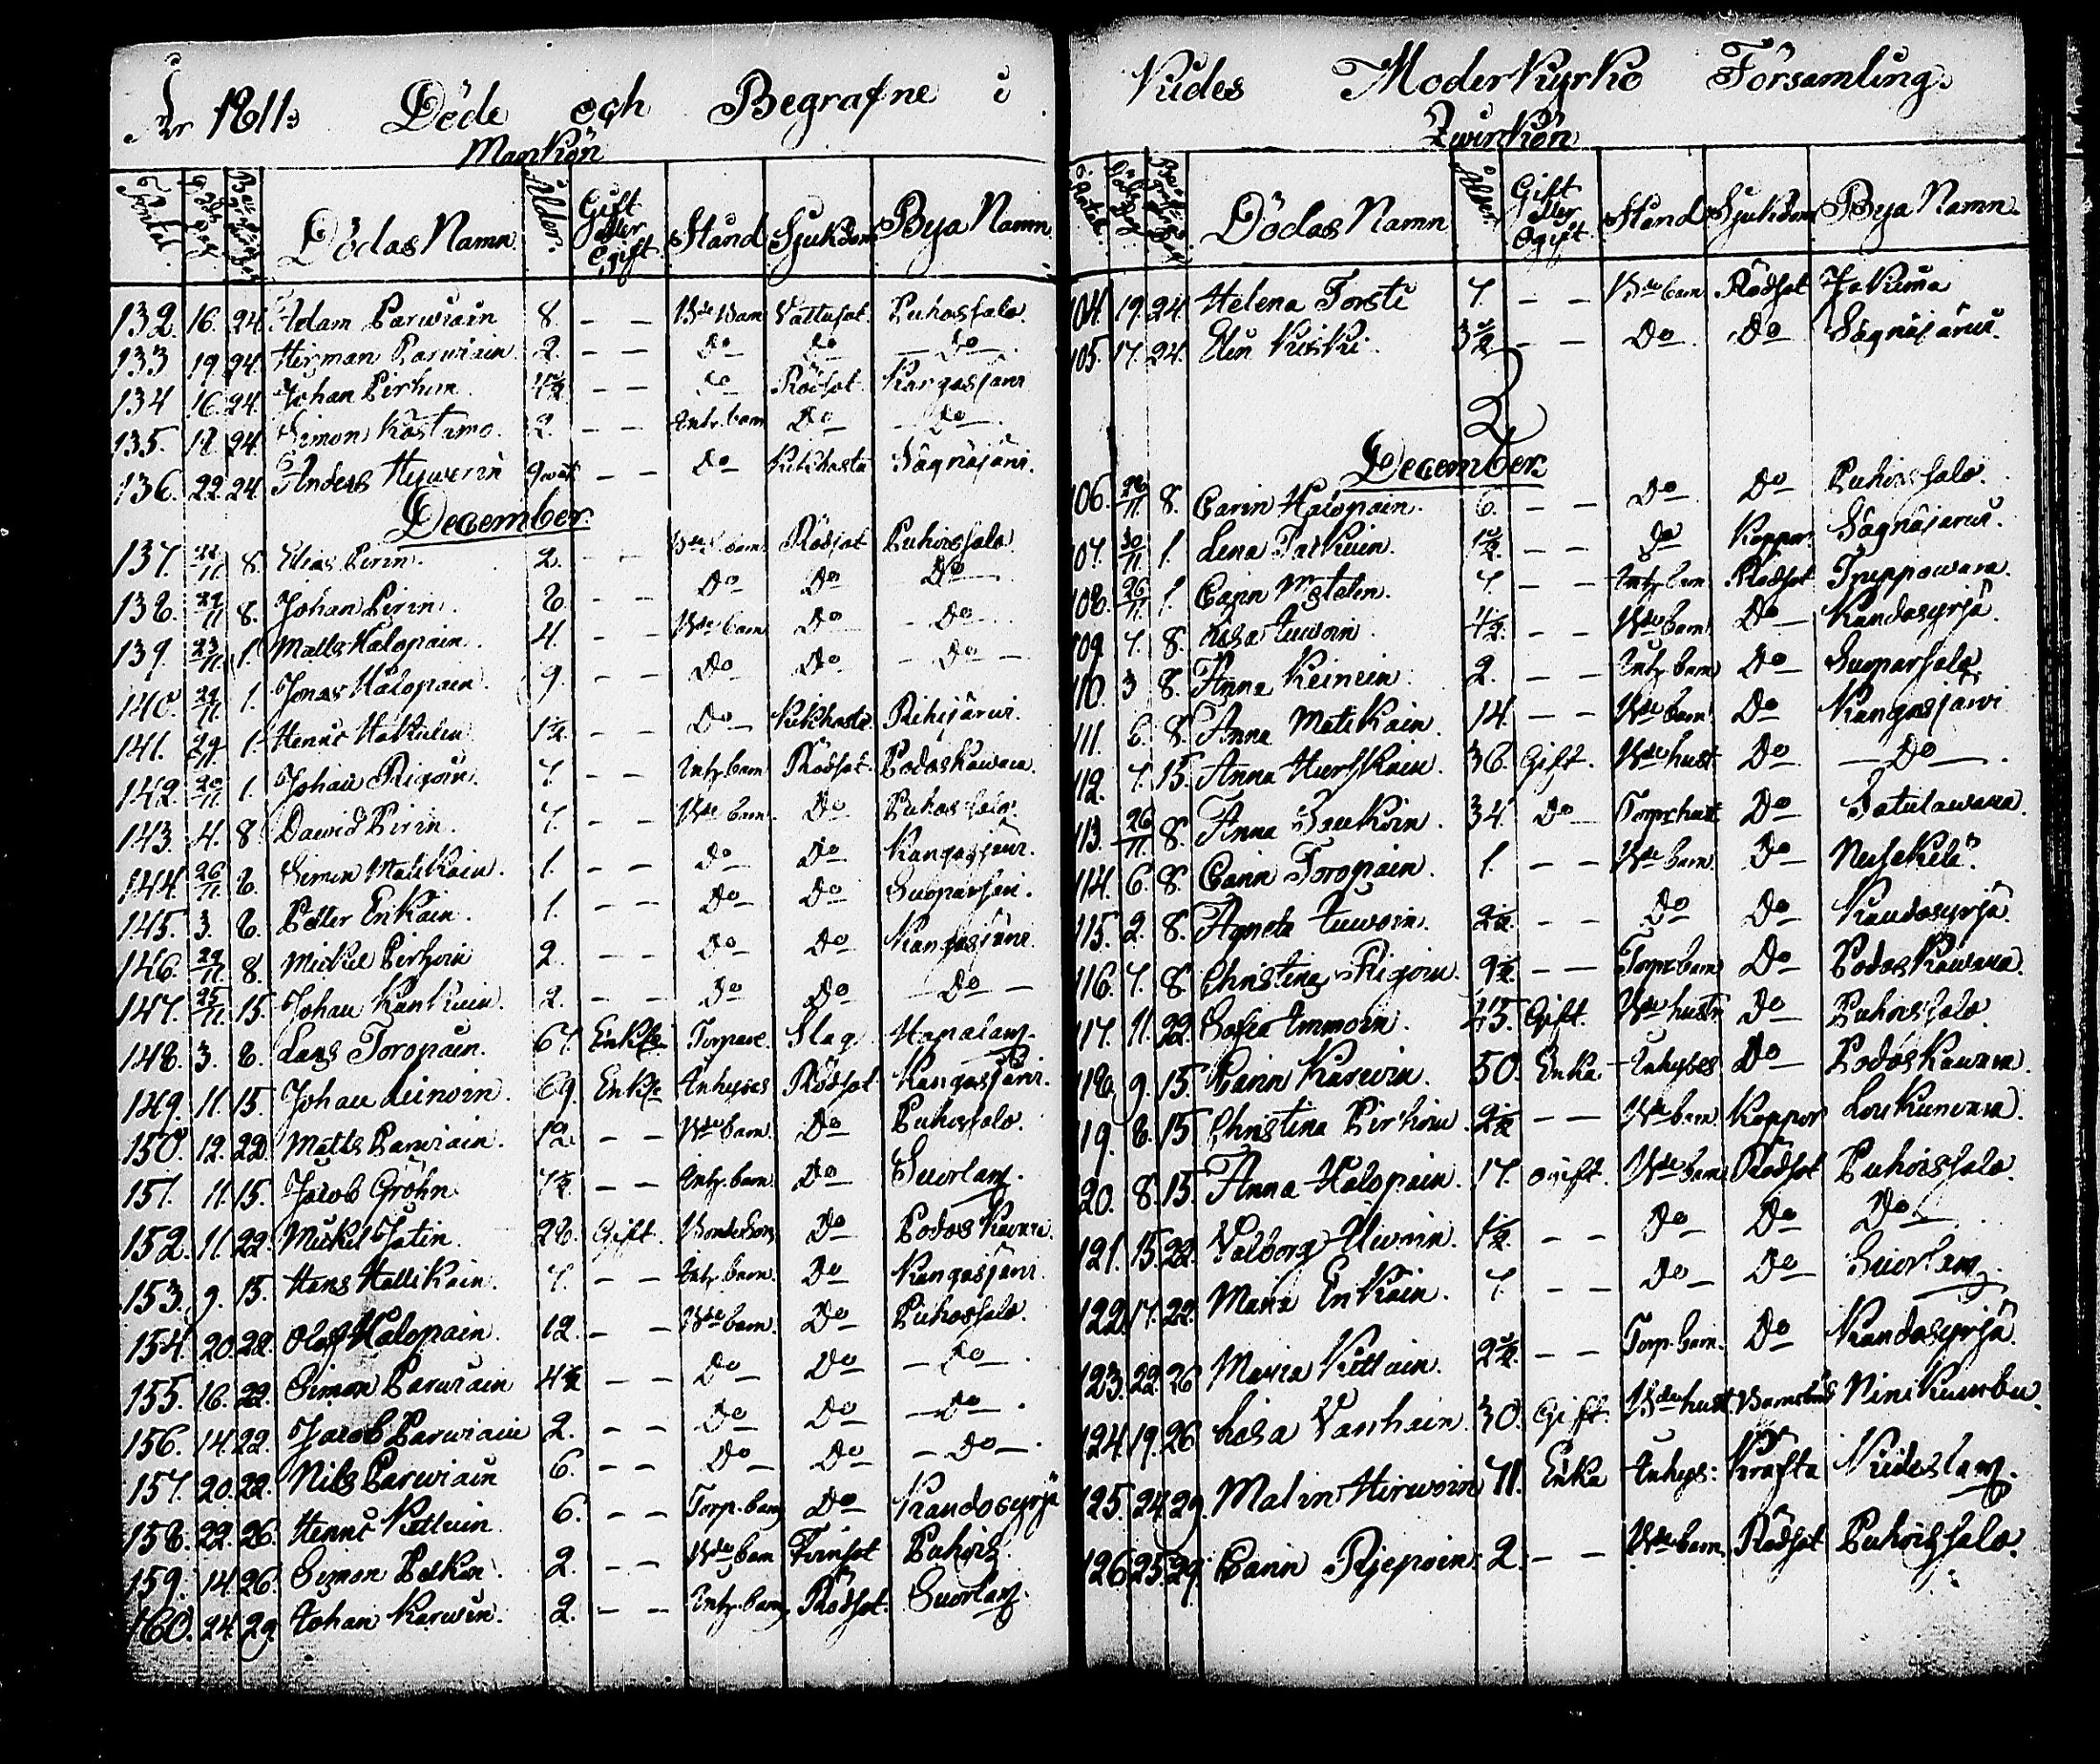 År 1811. Döde och Begrafne i
Mankön
Antal. Döds Dag Begrafnings Dag Dödas Namn Ålder. Gift eller Ogift. Stånd Sjukdom Bya Namn
132. 16. 24. Adam Parwiain 8. – – Bde Barn Vattusot. Puhossalo
133 19. 24. Herman Parwiain 2. – – Do Do Do
134 16. 24. Johan Pirhin. 4½ – – Do Rödsot Kangasjärvi
135. 17. 24. Simon Kostamo. 2. – – Inh. barn Do Do
136. 22. 24. Anders Hywerin – – Do Kikhosta Sägnäjärvi.
December.
137. 22/11 8. Elias Pirin. 2. – – barn Rödsot Puhossalo
138. 8. Johan Pirin. 8. – – Do Do Do
139. 23/11 1. Matts Halopain. 4. – – Bde barn Do – Do –
140. 29/11 1. Jonas Halopain. 9. – – Do Do – Do –
141. 29/11 1. Henric Hakulin 1½ – – Do Kikhosta. Rihijärwi.
142. 20/11 1. Johan Rigoin. 7. – – Inh. barn Rödsot. Podoskawara.
143. 4. 8. David Pirin. 7. – – Bde barn. Do Puhossalo.
144. 26/11 8. Simon Matikain. 1. – – Do Do Kangasjärvi.
145. 3. 8. Petter Erikain. 1. – – Do Do
146. 29/11 8. Mickel Pirhoin 2. – – Do Do Kangasjärvi.
147. 25/11 15. Johan Kankuin. 2. – – Do Do – Do –
148. 3. 8. Lars Toropain. 67. Enkl. Torpare. Slag
149. 11. 15. Johan Leinoin. 69. Enkl. Inhyses Rödsot Kangasjärvi.
150. 12. 22. Matts Parwiain. 12. – – Bde barn. Do Puhossalo.
151. 11. 15. Jacob Gröhn. 7½ – – Inh. barn Do Suorlax.
152. 11. 22. Mickel Jatin. 28. Gift. Bondeson Do Podoskawara.
153. 9. 15. Hans Hallikain. 7. – – Inh. barn. Do Kangasjärvi.
154. 20. 22. Olof Halopain. 12. – – Bde barn. Do Puhossalo.
155. 16. 22. Simon Parwiain 4½ – – Do Do – Do –
156. 14. 22. Jacob Parwiain 2. – – Do Do – Do –
157. 20. 22. Nils Parwiain 6. – – Do Do – Do –
158. 22. 26. Henric Kettuin. 6. – – Torp. barn Do Kandosyrjä
159. 14. 26. Simon Pelkin. 2. – – Bde barn Puhois.
160. 24. 29. Johan Karwin. 2. – – Inh. barn Rödsot. Suorlax.
Kides Moderkyrko Församling.
Qwinkön
Antal. Döds Dag Begrafnings Dag Dödas Namn Ålder. Gift eller Ogift. Stånd Sjukdom Bya Namn.
104. 19. 24. Helena Torsti 7. – – Bde barn Rödsot Jakima
105. 17. 24. Elin Kiiski. 3½ – – Do Do Sägnäjärwi.
December
106. 8. Carin Halopain. 6. – – Do Do Puhossalo.
107. 30/11 1. Lena Paskuin. 1½ – – Do Koppor. Sägnäjärwi.
108. 26/11 1. Carin 7. – – Inh. barn Rödsot Treppowara.
109. 7. 8. Lisa Tuwoin. 4½ – – Bde barn Do Kandosyrjä.
110. 3 8. Anna Keinein. 2. – – Inh. barn Do
111. 6. 8. Anna Matikain. 14. – – Bde barn Do Kangasjärvi
112. 7. 15. Anna Hurskain. 36. Gift. Bde hust. Do – Do –
113. 26/11 8. Anna Saukoin. 34. Do Torp. hust Do Satulawara.
114. 6. 8. Carin Toropain. 1. – – Bde barn. Do
115. 2. 8. Agneta Tuwoin. 2½ – – Do Do Kandosyrjä.
116. 7. 8. Christina Rigoin. 9½ – – Torp. barn Do Podoskawara.
117. 11. 22. Sofia Immoin. 45. Gift. Bde hustr. Do Puhossalo.
118. 9. 15. Carin Karwin. 50. Enka Inhyses Do Podoskawara.
119. 8. 15. Christina Pirhoin. 2½ – – Bde barn. Koppor Loukunwara.
120. 8. 15. Anna Halopain. 17. ogift. Bde barn Rödsot Puhoissalo.
121. 15. 22. Valborg 1½ – – Do Do Do
122. 17. 22. Maria Erikain. 7. – – Do Do Suorlax.
123. 22. 26 Maria Kettuin. 2½. – – Torp. barn. Do Kandosyrjä.
124. 19. 26. Lisa Vanhain. 30. Gift. Bde hust. Barnsbörd Niinikumbu.
125. 24. 29. Malin Hirwoin 71. Enka Inhys: Kräfta Kideslax.
126. 25. 29. Carin Rjepoin. 2. – – Bde barn. Rödsot Puhoissalo.